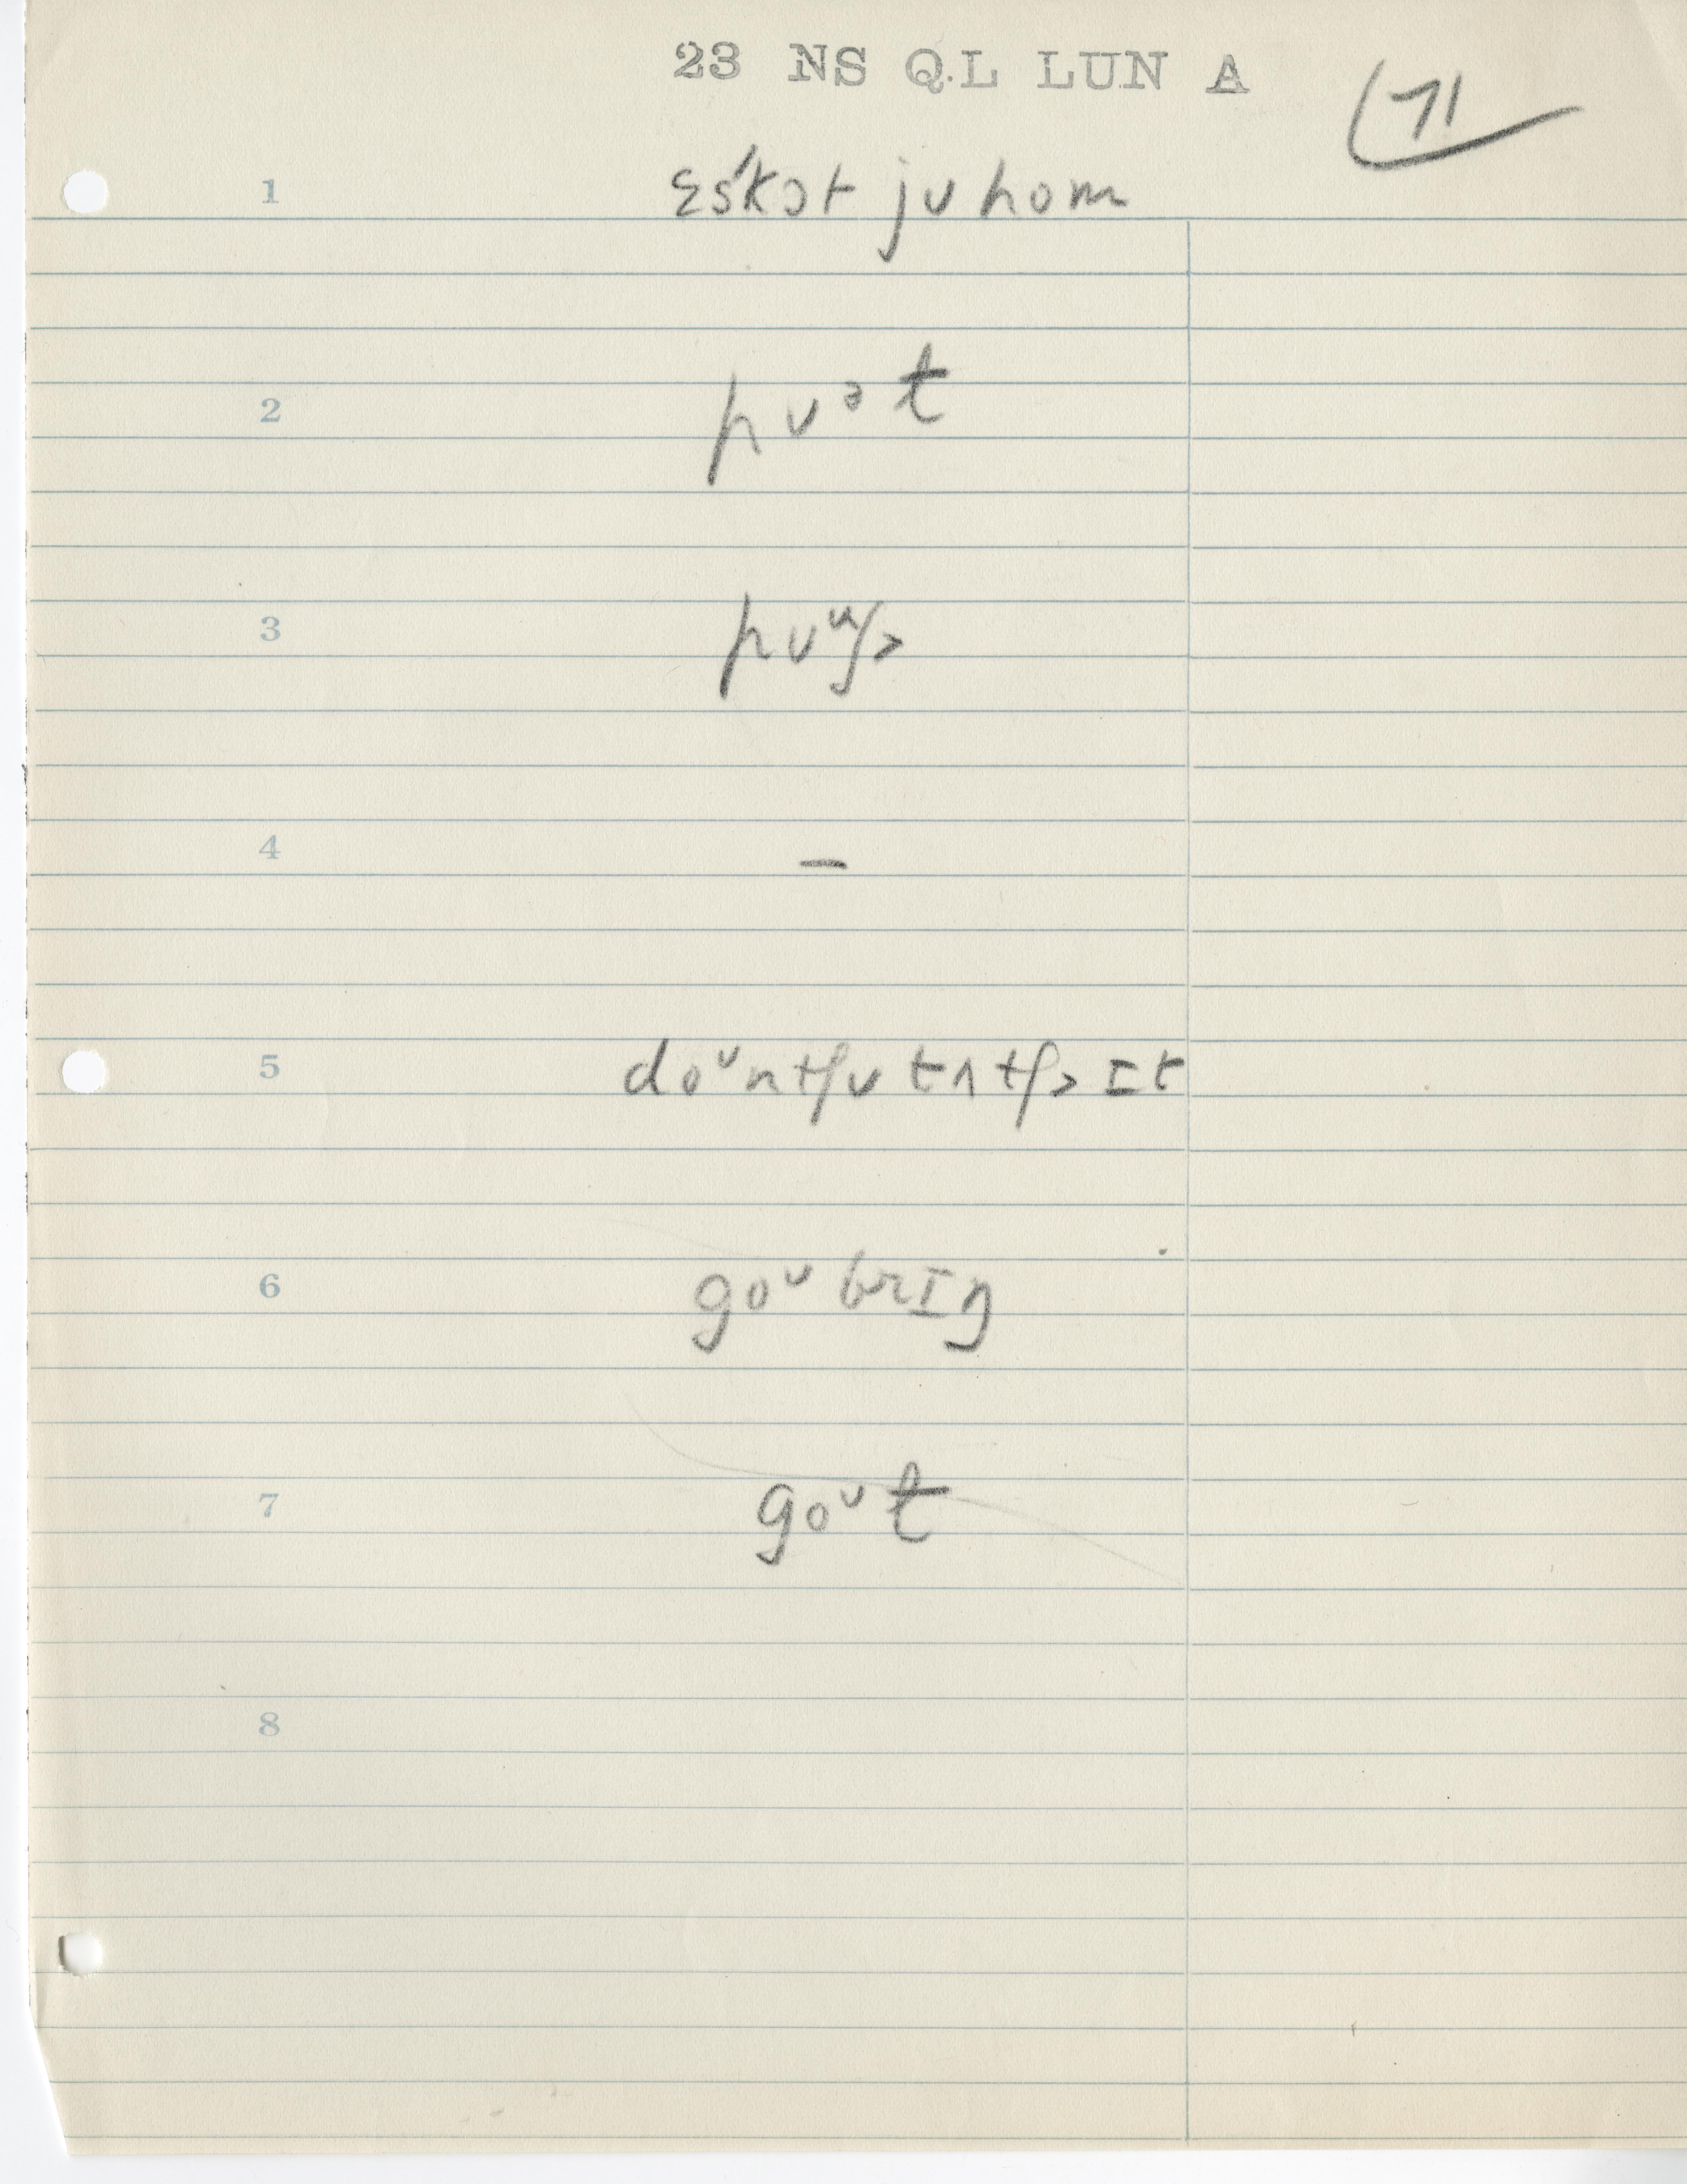 23 NS QL LUN A
71
1 ɛśkɔt ju hom
2 pʊᵊt
3 pʊ
4 –
5 doᶷntʃʊ tʌtʃ> ɪt
6 goᶷ brɪŋ
7 goᶷt
8